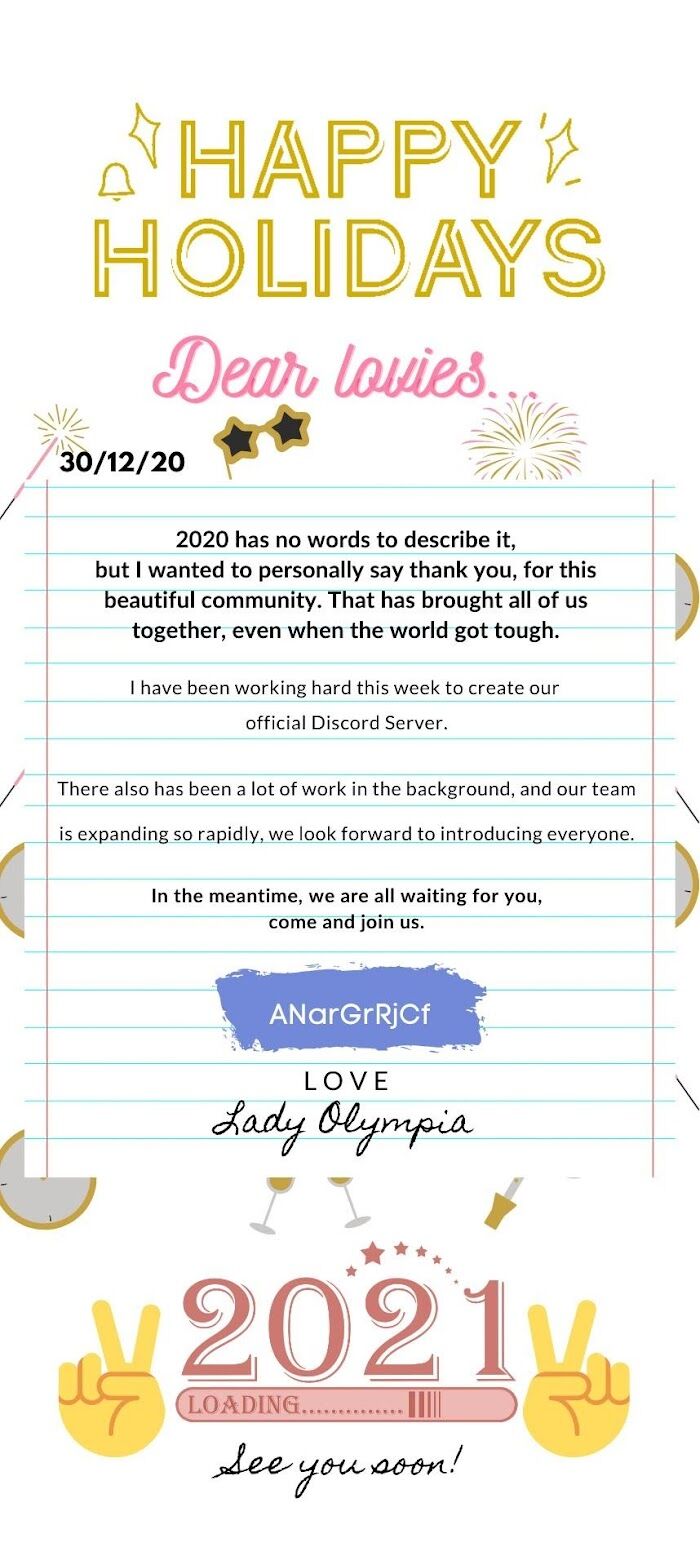 HAPPY
HOLIDAYS
Dear lovies...
30/12/20
2020 has no words to describe it,
but I wanted to personally say thank you, for this
beautiful community. That has brought all of us
together, even when the world got tough.
I have been working hard this week to create our
official Discord Server.
There also has been a lot of work in the background, and our team
is expanding so rapidly, we look forward to introducing everyone.
In the meantime, we are all waiting for you,
come and join us.
ANarGrRjCf
LOVE
Lady Olympia
2021
LOADING.............
See you soon!